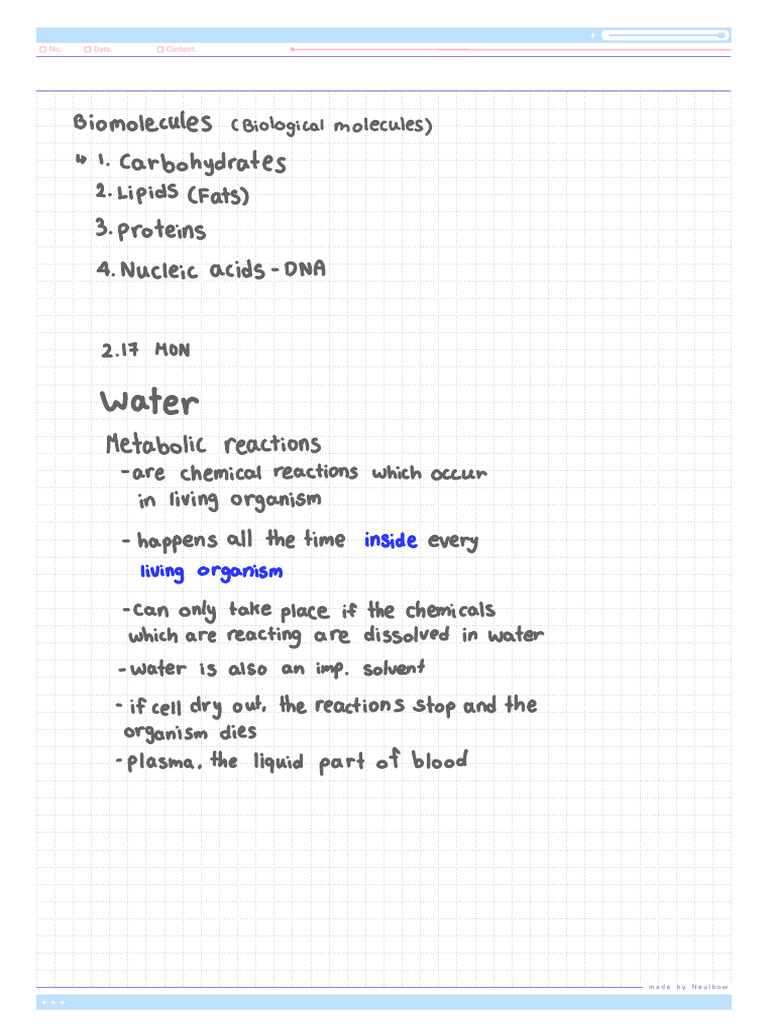 No. Date. Content.
Biomolecules (Biological molecules)
↳ 1. Carbohydrates
2. Lipids (Fats)
3. proteins
4. Nucleic acids - DNA
2.17 MON
Water
Metabolic reactions
- are chemical reactions which occur
in living organism
- happens all the time inside every
living organism
- Can only take place if the chemicals
which are reacting are dissolved in water
- water is also an imp. solvent
- if cell dry out, the reactions stop and the
organism dies
- plasma, the liquid part of blood
made by Neulbow